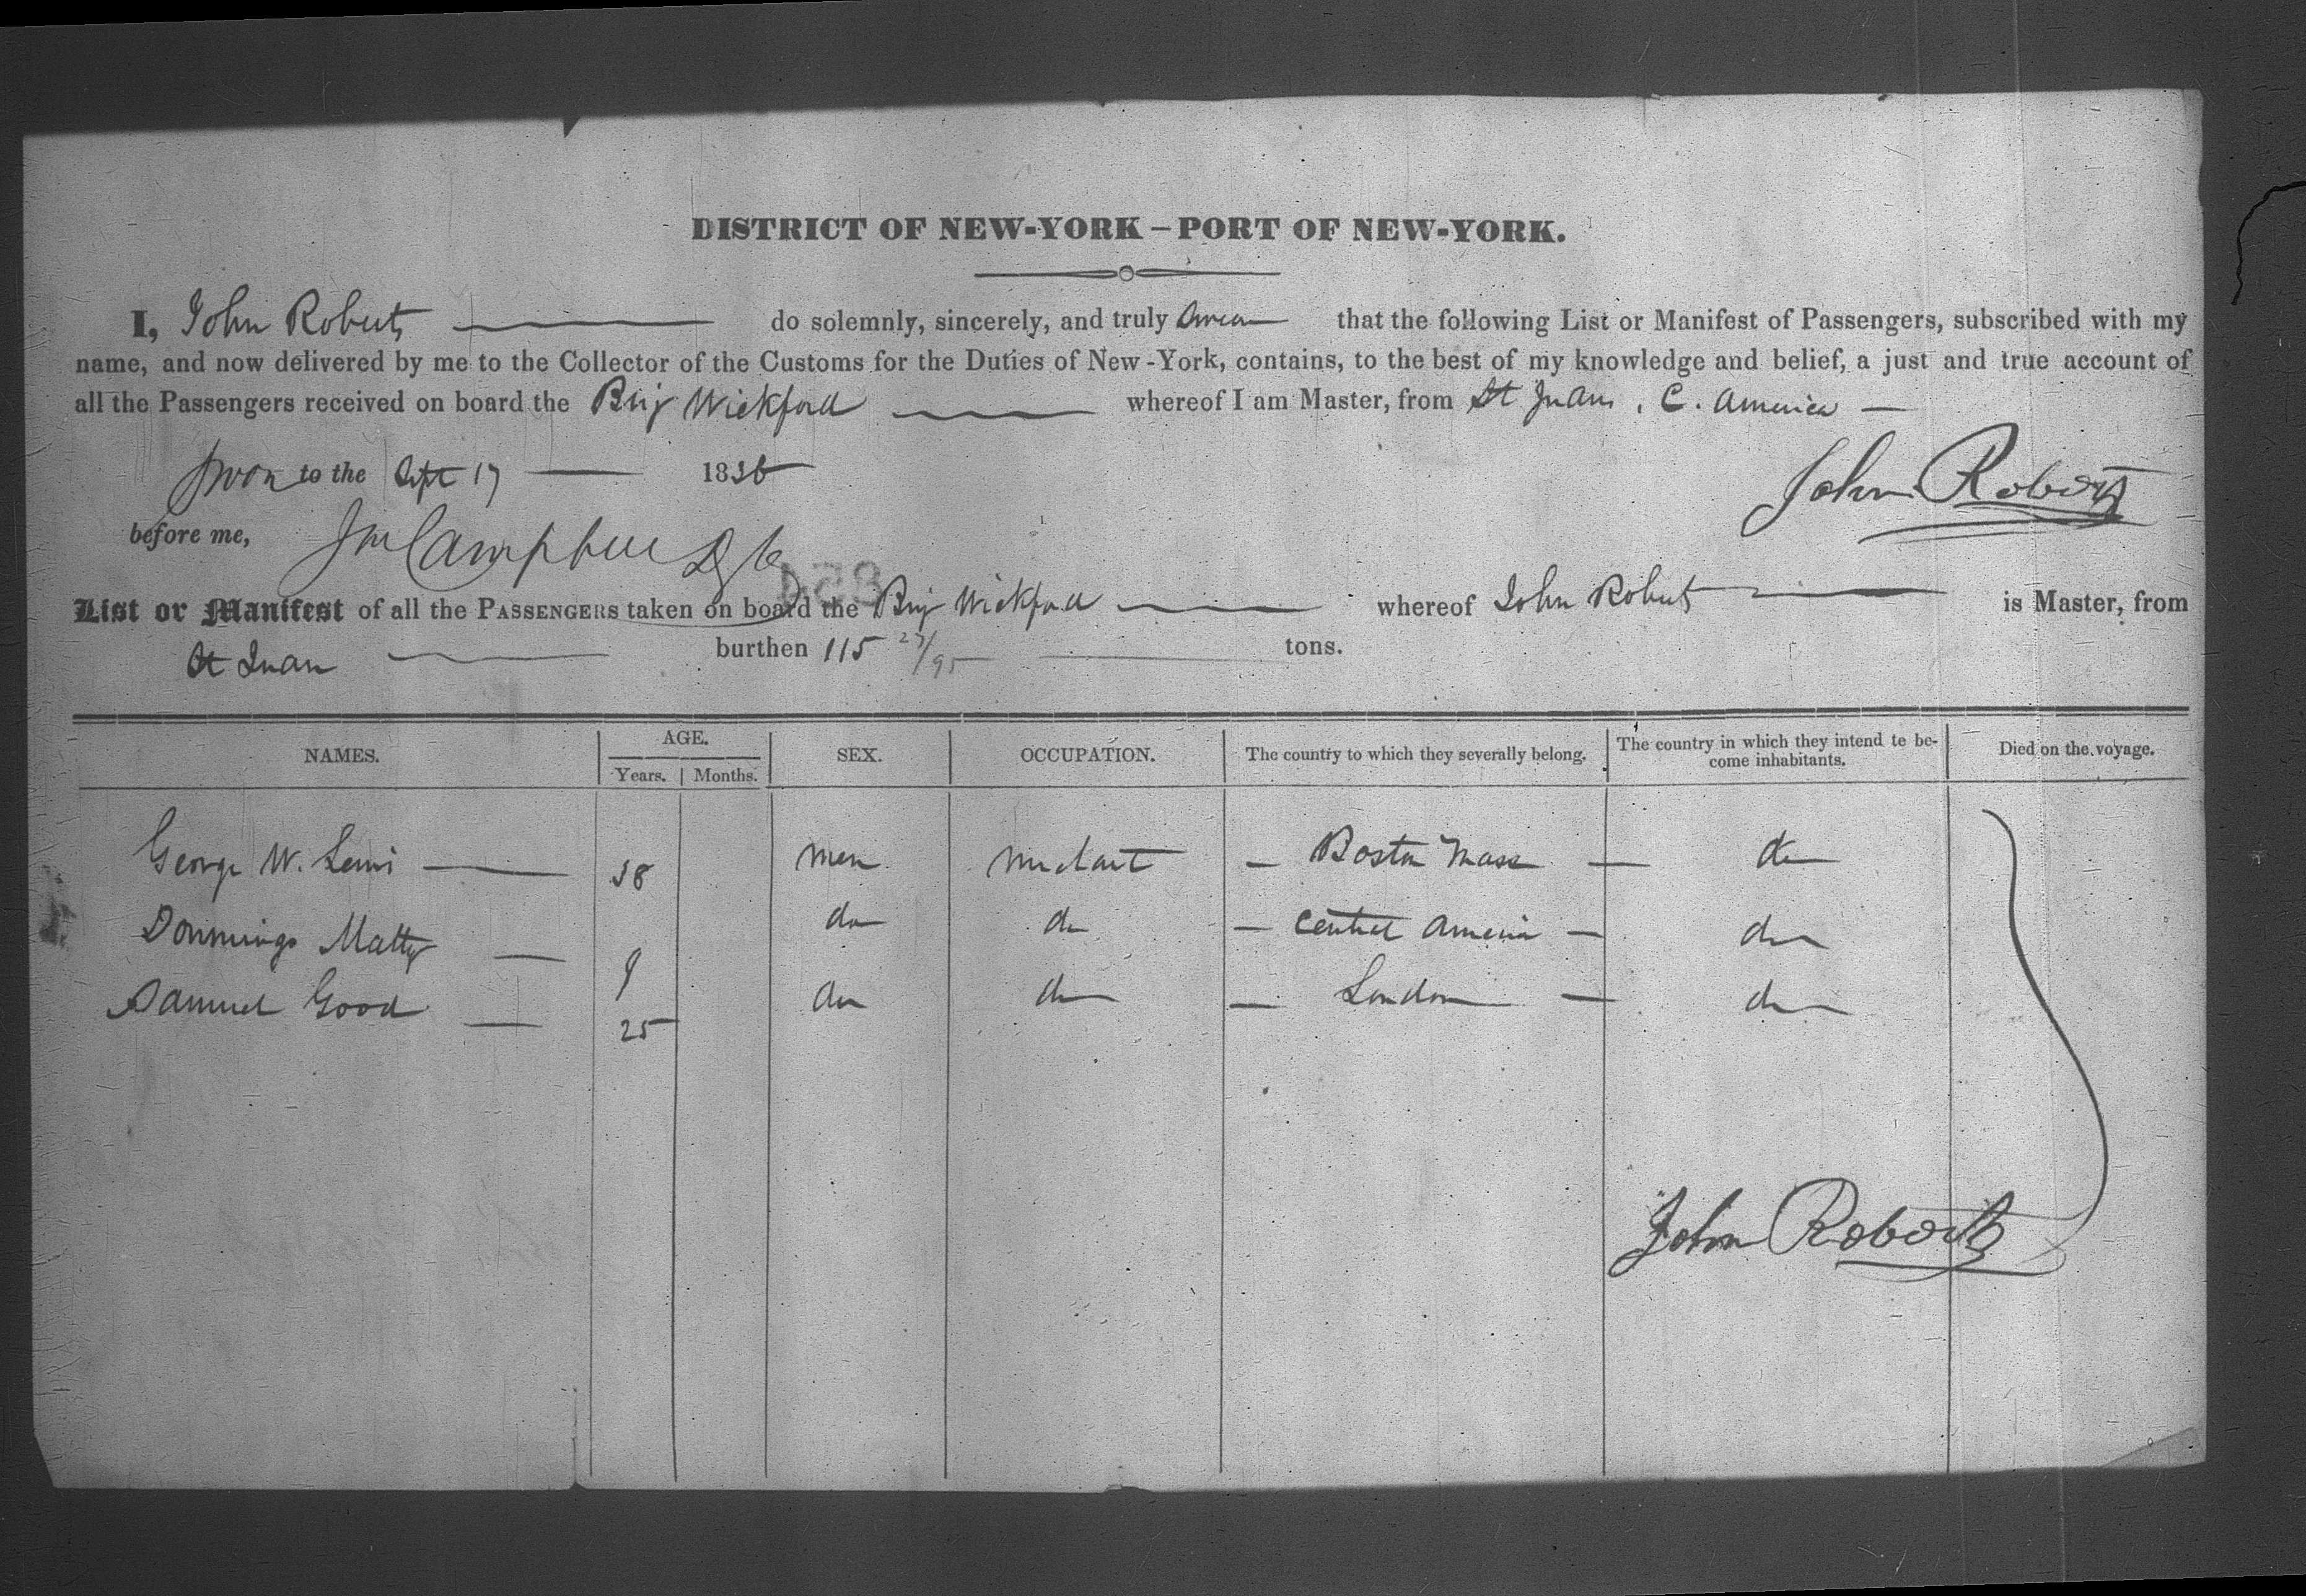 DISTRICT OF NEW-YORK – PORT OF NEW-YORK.
I, John Roberts do solemnly, sincerely, and truly swear that the following List or Manifest of Passengers, subscribed with my
name, and now delivered by me to the Collector of the Customs for the Duties of New-York, contains, to the best of my knowledge and belief, a just and true account of
all the Passengers received on board the Brig Wickford whereof I am Master, from St Juans, C. America
Sworn to the Sept 17 1836 John Roberts
before me, Campbell
List or Manifest of all the PASSENGERS taken on board the Brig Wickford whereof John Roberts is Master, from
St Juan burthen 115 27/95 tons.
NAMES. AGE. Years. Months. SEX. OCCUPATION. The country to which they severally belong. The country in which they intend te become inhabitants. Died on the voyage.
George W. Lewis 38 men Merchant Boston Mass do
Matty 9 do do Central America do
Samuel Good 25 do do London do
John Roberts